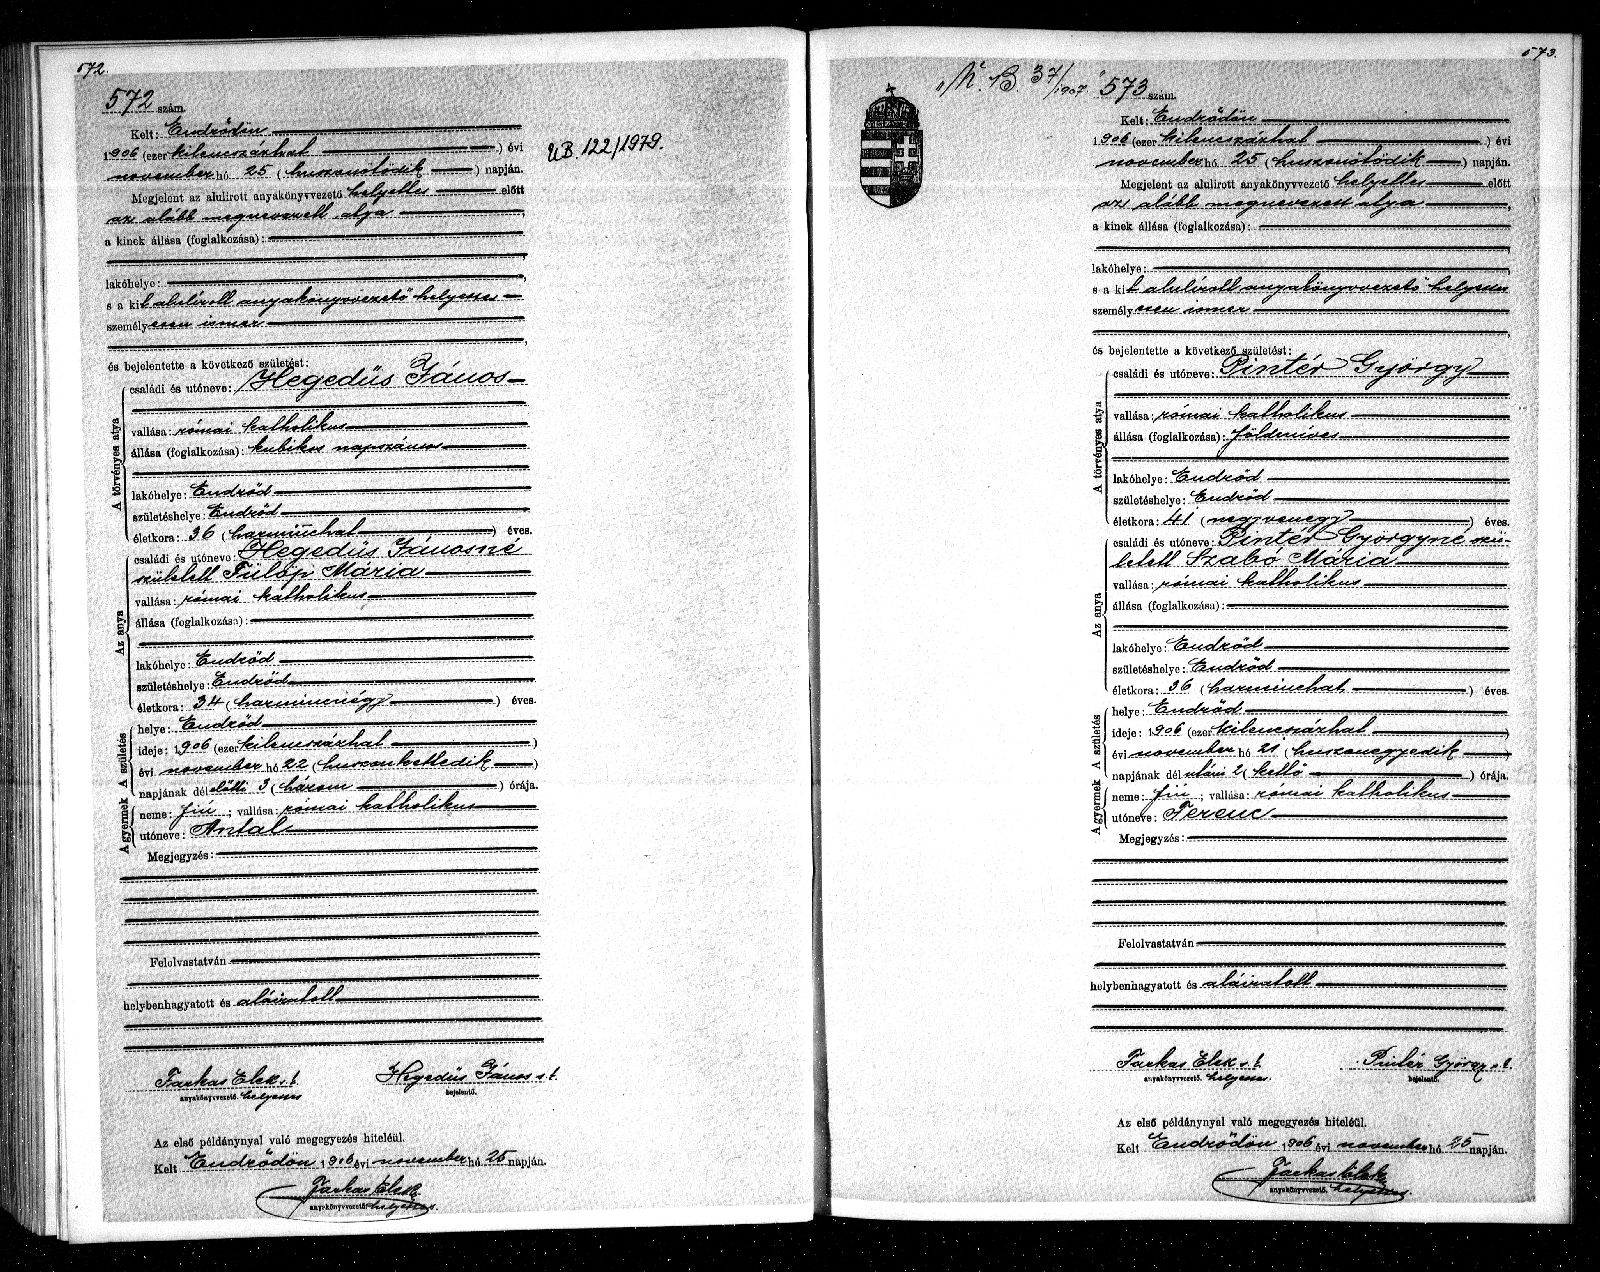 572.
572 szám.
Kelt: Endrődön
1906 (ezer kilencszázhat ) évi
november hó 25 (huszonötödik ) napján.
Megjelent az alulirott anyakönyvvezető helyettes előtt
az alább megnevezett atya
a kinek állása (foglalkozása):
lakóhelye:
s a kit alulírott anyakönyvvezető helyettes
személyesen ismer
és bejelentette a következő születést:
A törvényes atya
családi és utóneve: Hegedüs János
vallása: római katholikus
állása (foglalkozása): kubikos napszámos
lakóhelye: Endrőd
születéshelye: Endrőd
életkora: 36 (harminchat ) éves.
Az anya
családi és utóneve: Hegedüs Jánosné
született Fülöp Mária
vallása: római katholikus
állása (foglalkozása):
lakóhelye: Endrőd
születéshelye: Endrőd
életkora: 34 (harmincnégy ) éves.
A születés
helye: Endrőd
ideje: 1906 (ezer kilencszázhat )
évi november hó 22 (huszonkettedik )
napjának délelőtti 3 (három ) órája.
A gyermek
neme: fiú ; vallása: római katholikus
utóneve: Antal
Megjegyzés:
Felolvastatván
helybenhagyatott és aláiratott
Farkas Elek s. k. Hegedüs János s. k.
anyakönyvvezető. helyettes bejelentő.
Az első példánynyal való megegyezés hiteléül.
Kelt Endrődön 1906 évi november hó 25 napján.
Farkas Elek
anyakönyvvezető. helyettes.
UB. 122/1979.
573.
N. B 37/1907
573 szám.
Kelt: Endrődön
1906 (ezer kilencszázhat ) évi
november hó 25 (huszonötödik ) napján.
Megjelent az alulirott anyakönyvvezető helyettes előtt
az alább megnevezett atya
a kinek állása (foglalkozása):
lakóhelye:
s a kit alulírott anyakönyvvezető helyettes
személyesen ismer
és bejelentette a következő születést:
A törvényes atya
családi és utóneve: Pintér György
vallása: római katholikus
állása (foglalkozása): földmíves
lakóhelye: Endrőd
születéshelye: Endrőd
életkora: 41 (negyvenegy ) éves.
Az anya
családi és utóneve: Pintér Györgyné szü-
letett Szabó Mária
vallása: római katholikus
állása (foglalkozása):
lakóhelye: Endrőd
születéshelye: Endrőd
életkora: 36 (harminchat ) éves.
A születés
helye: Endrőd
ideje: 1906 (ezer kilencszázhat )
évi november hó 21 (huszonegyedik )
napjának délutáni 2 (kettő ) órája.
A gyermek
neme: fiú ; vallása: római katholikus
utóneve: Ferenc
Megjegyzés:
Felolvastatván
helybenhagyatott és aláiratott
Farkas Elek s. k. Pintér György s. k.
anyakönyvvezető. helyettes. bejelentő.
Az első példánynyal való megegyezés hiteléül.
Kelt Endrődön 1906 évi november hó 25 napján.
Farkas Elek
anyakönyvvezető. helyettes.